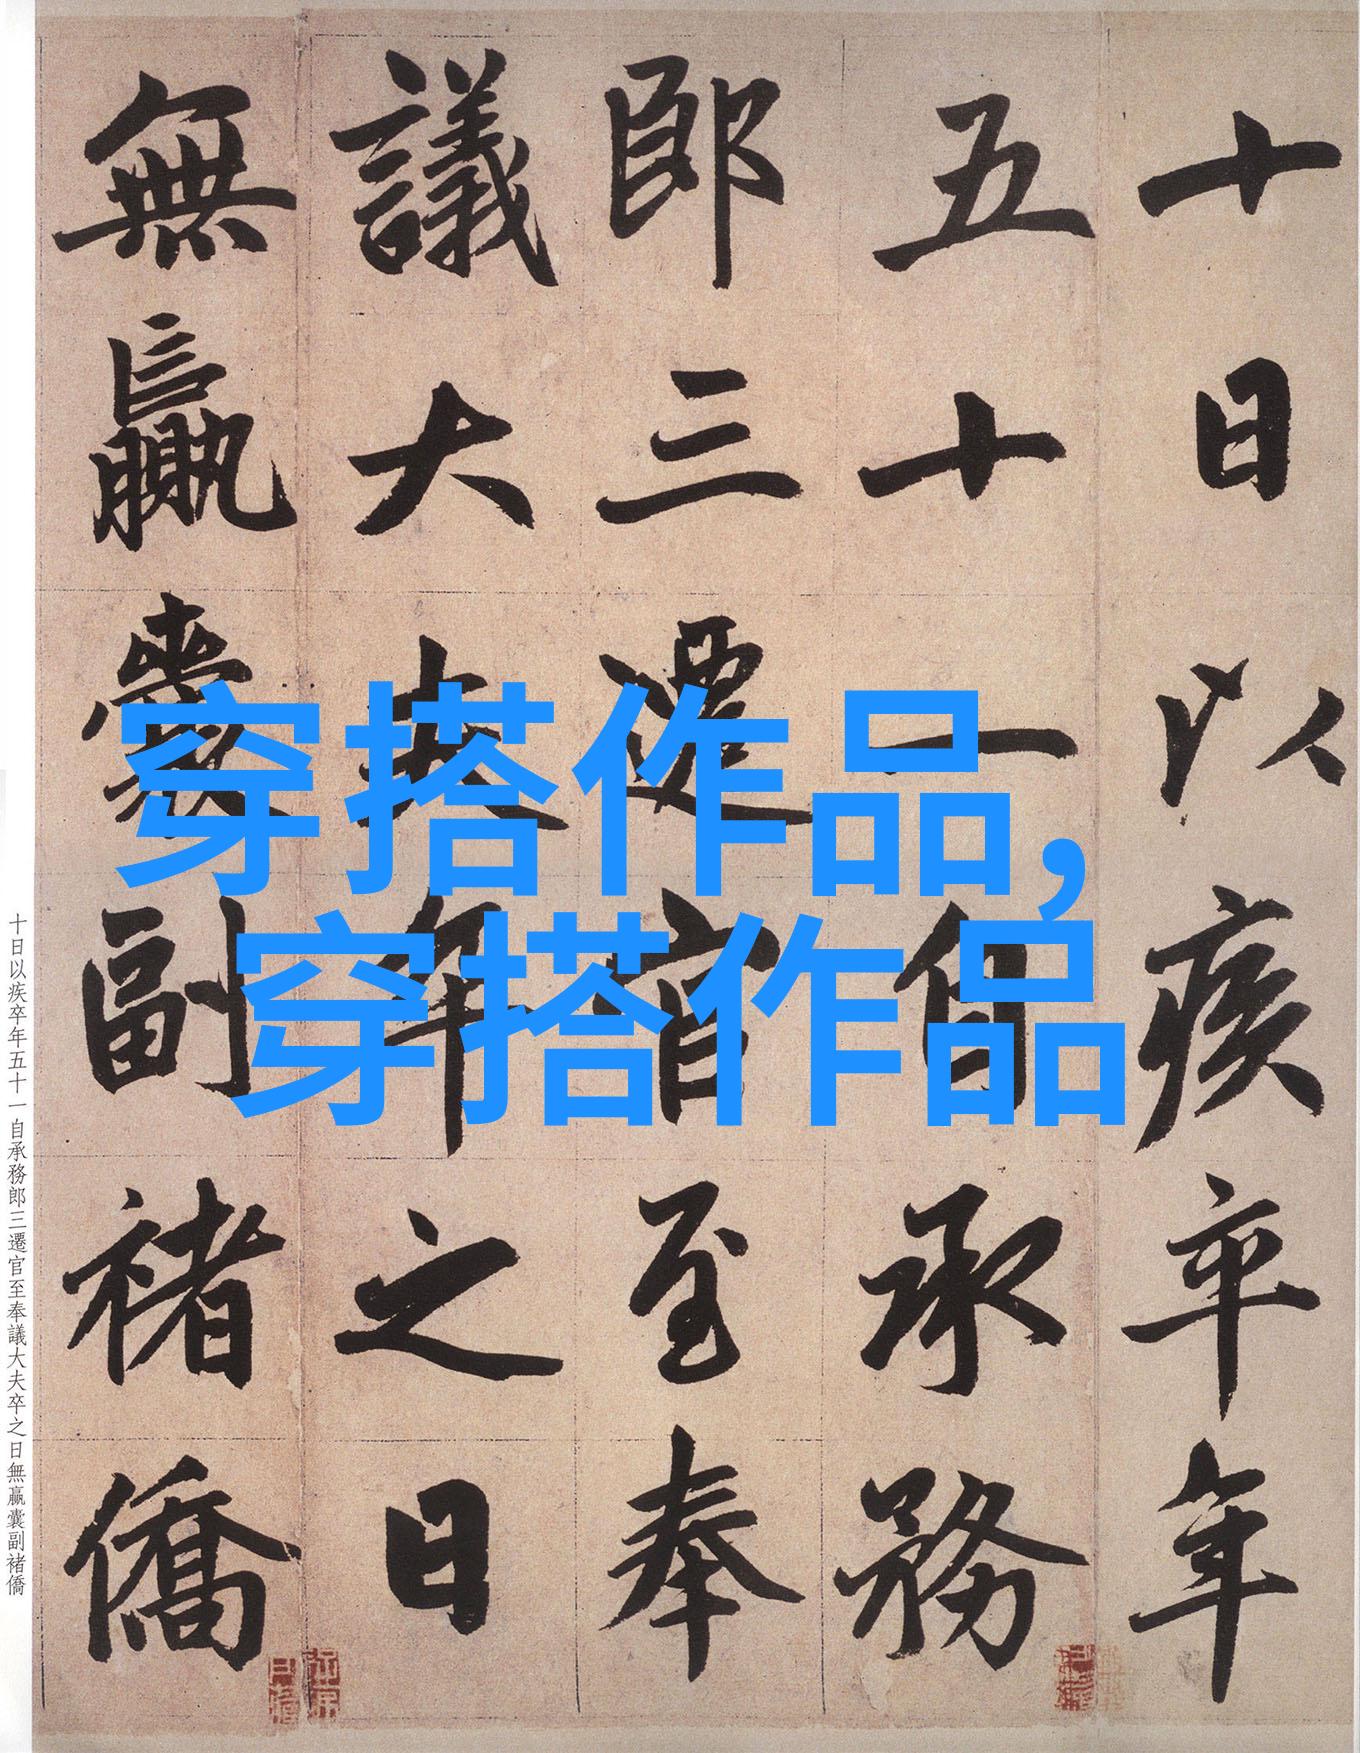 十日以疾卒年
五十一自承務
郎三遷官至奉
議大夫卒之日
無贏囊副褚僑
穿搭作品,
穿搭作品
十日以疾卒年五十一自承務郎三遷官至奉議大夫卒之日無贏囊副褚僑